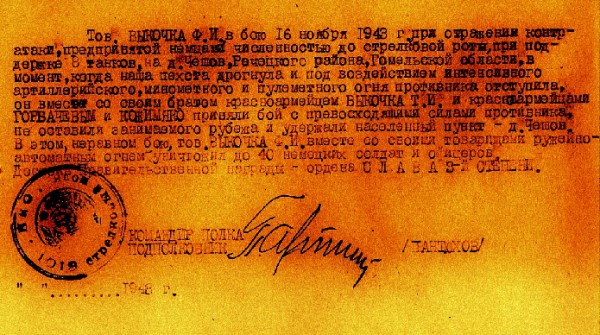 Тов. ВЫКОЧКА Ф.И. в бою 16 ноября 1943 г. при отражении контр-
атаки, предпринятой немцами численностью до стрелковой роты, при под-
держке 8 танков, на д.Чешов, Речецкого района, Гомельской области, в
момент, когда наша пехота дрогнула и под воздействием интенсивного
артиллерийского, минометного и пулеметного огня противника отступила,
он вместе со своим братом красноармейцем ВЫКОЧКА Т.И. и красноармейцами
ГОРБАЧЕВЫМ и КОЖИМЯКО приняли бой с превосходящими силами противника,
не оставили занимаемого рубежа и удержали населенный пункт - д.Чешов.
В этом, неравном бою, тов. ВЫКОЧКА Ф.И. вместе со своими товарищами ружейно-
автоматным огнем уничтожил до 40 немецких солдат и офицеров
правительственной награды - ордена СЛАВА 3-й СТЕПЕНИ.
КОМАНДИР ПОЛКА
ПОДПОЛКОВНИК
/ПАНТЮХОВ/
" "..........1943 г.
НКО
1018 стрелковый